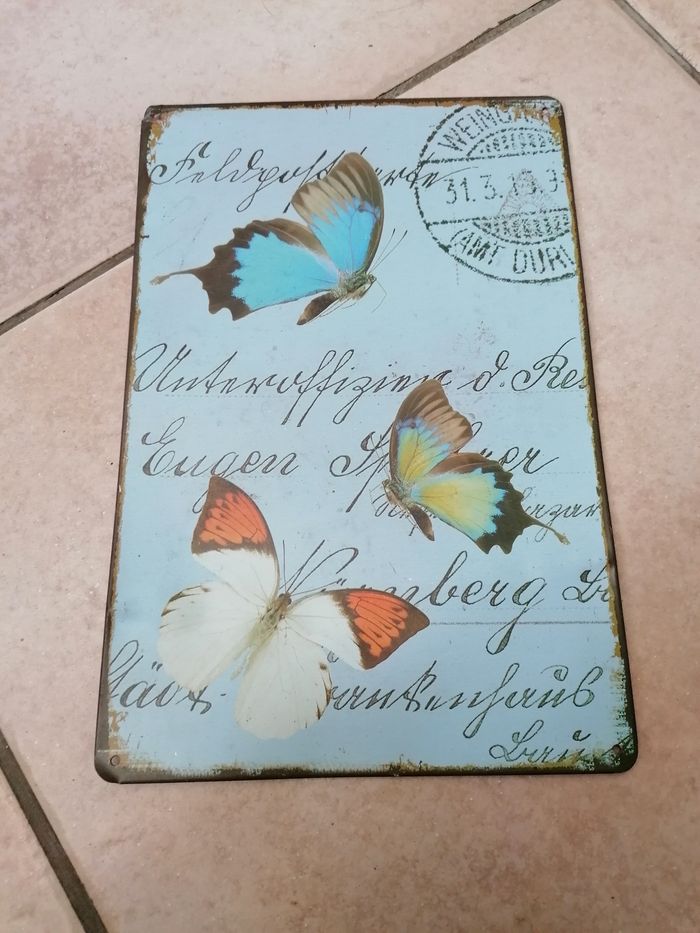 Feldpostkarte
WEINGAR
31.3.
(AMT DURL
Unteroffizier d. Res
Eugen
Lazar
Nürnberg
Städt. Krankenhaus
Bau